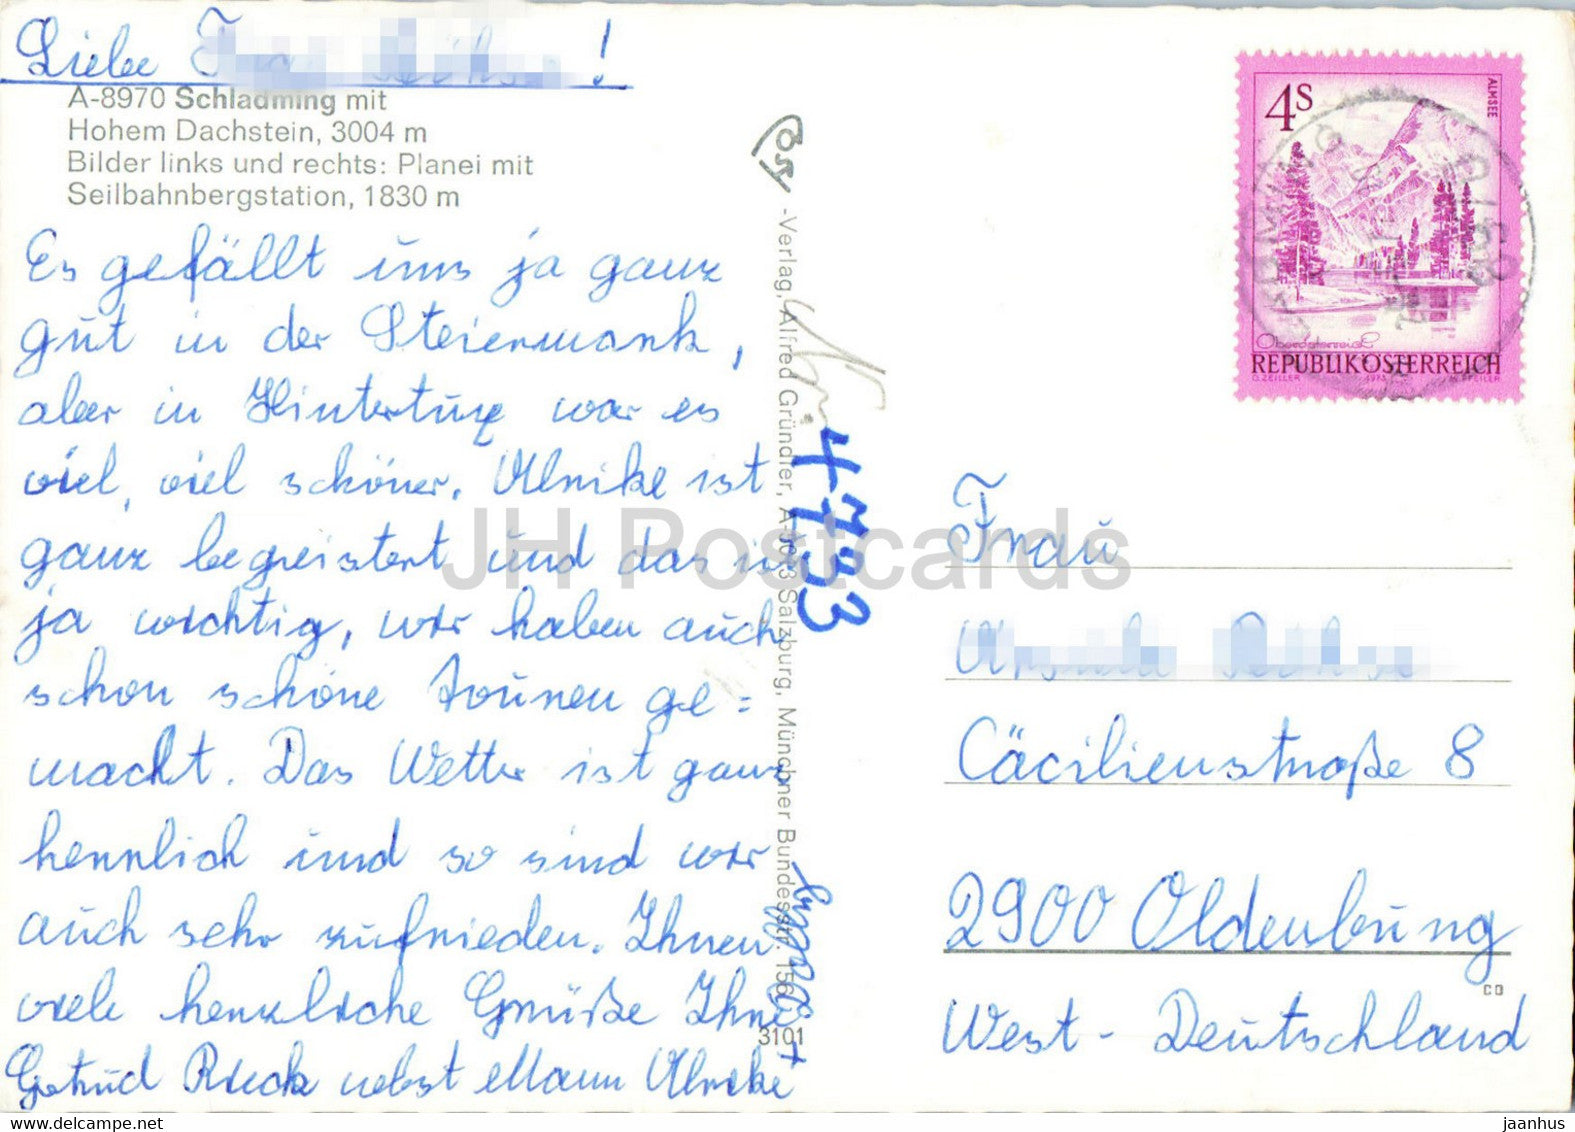 Liebe !
A-8970 Schladming mit
Hohem Dachstein, 3004 m
Bilder links und rechts: Planei mit
Seilbahnbergstation, 1830 m
Es gefällt uns ja ganz
gut in der Steiermark,
aber in Hintertux war es
viel, viel schöner. Ulrike ist
ganz begeistert und das ist
ja wichtig, wir haben auch
schon schöne Touren ge=
macht. Das Wetter ist ganz
herrlich und so sind wir
auch sehr zufrieden. Ihnen
viele herzliche Grüße Ihre
Gertrud Rieck nebst Mann Ulrike +
-Verlag, Alfred Gründler, A-5023 Salzburg, Münchner Bundesstr. 156
3101
4733
4S
ALMSEE
Oberösterreich
REPUBLIK ÖSTERREICH
O. ZEILLER 1973 W. PFEILER
Frau
Cäcilienstraße 8
2900 Oldenburg
West-Deutschland
CD
JH Postcards
delcampe.net
jaanhus